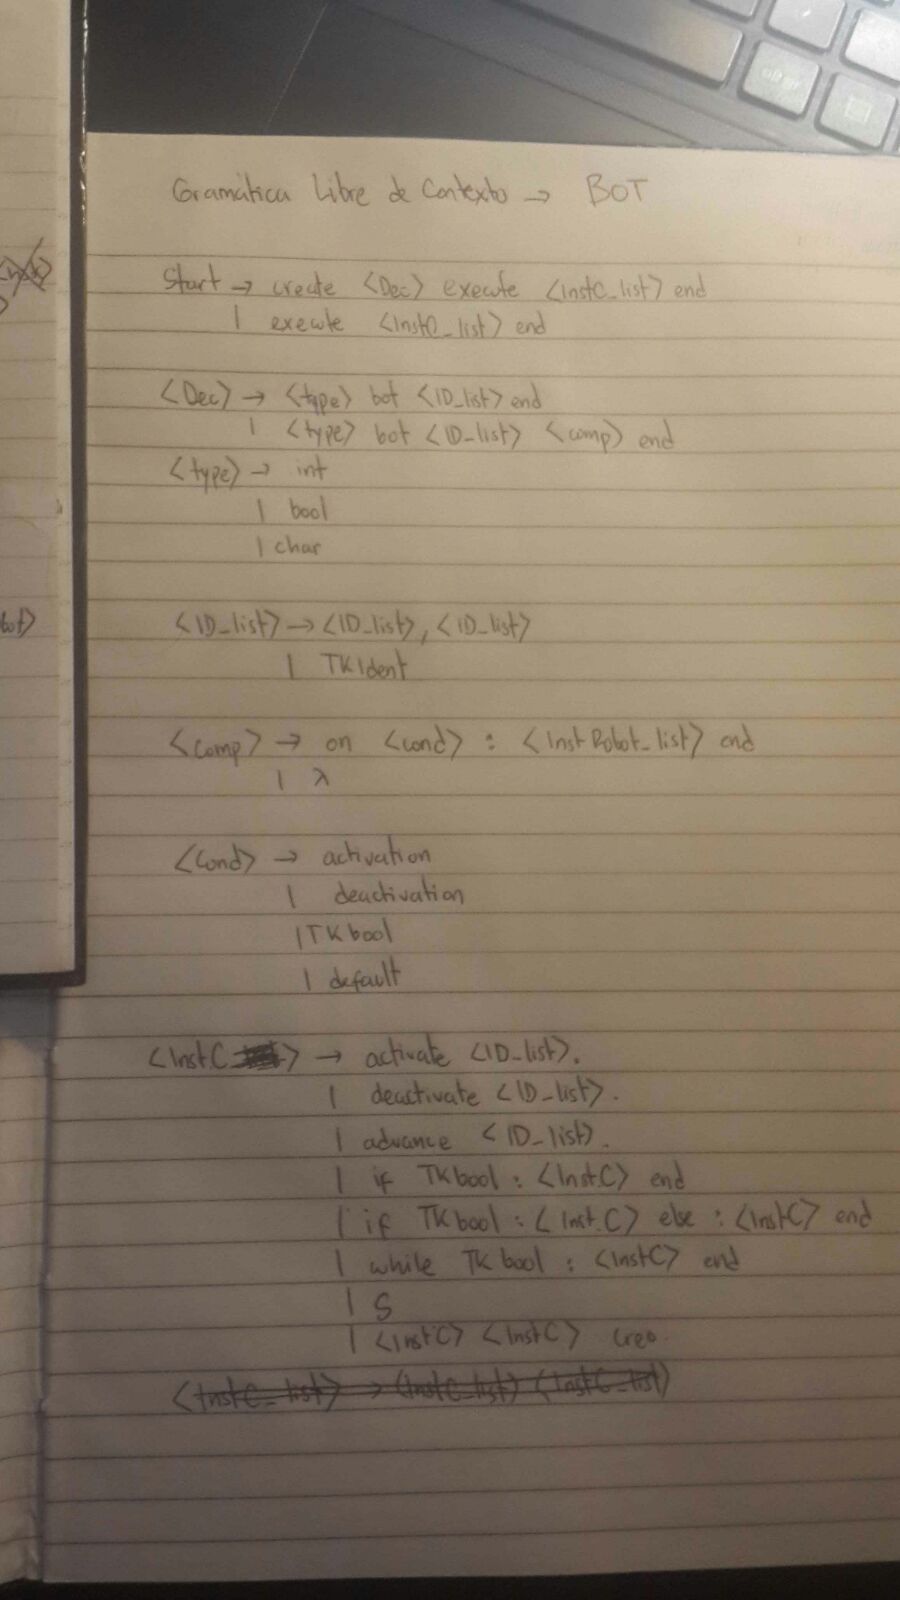 Gramática Libre de Contexto → BOT
Start → create <Dec> execute <InstC_list> end
| execute <InstC_list> end
<Dec> → <type> bot <ID_list> end
| <type> bot <ID_list> <comp> end
<type> → int
| bool
| char
bot>
<ID_list> → <ID_list>, <ID_list>
| TKIdent
<comp> → on <cond> : <InstRobot_list> end
| λ
<cond> → activation
| deactivation
| TKbool
| default
<InstC> → activate <ID_list>.
| deactivate <ID_list>.
| advance <ID_list>.
| if TKbool : <InstC> end
| if TKbool : <InstC> else : <InstC> end
| while TKbool : <InstC> end
| S
| <InstC> <InstC> creo.
<InstC_list> → <InstC_list> <InstC_list>